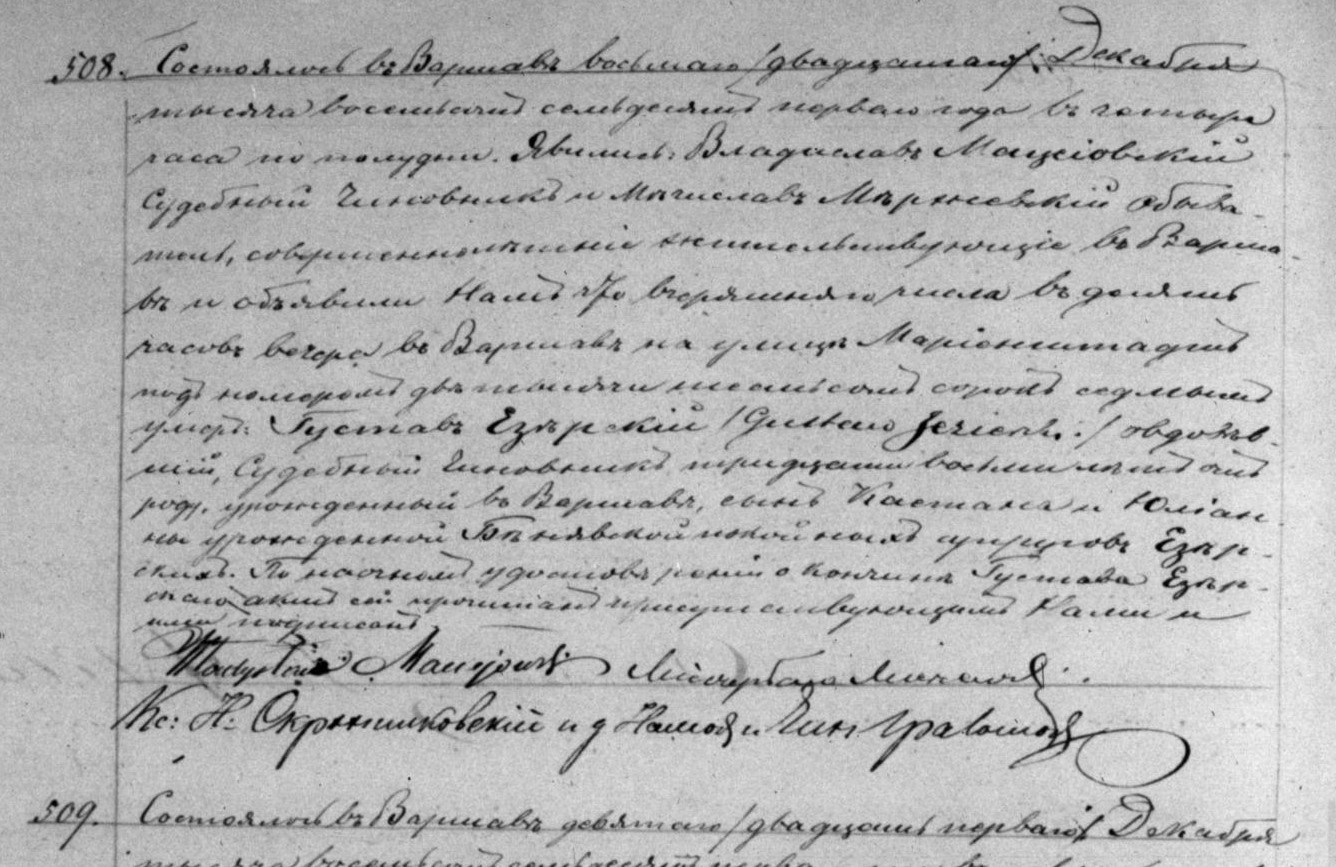 508. Состоялось въ Варшавѣ восьмаго /двадцатаго/ Декабря
тысяча восемьсотъ семьдесятъ перваго года въ четыре
часа по полудни. Явились: Владиславъ Мацеіовскій
Судебный Чиновникъ и Мѣчиславъ Мѣржеевскій Обыва-
тель, совершеннолѣтніе жительствующіе въ Варша-
вѣ и объявили Намъ что вчерашняго числа въ десять
часовъ вечера въ Варшавѣ на улицѣ Маріенштадтъ
подъ номеромъ двѣ тысячи шестьсотъ сорокъ седьмымъ
умеръ: Густавъ Езѣрскій /Gustaw Jezierski/ овдовѣв-
шій, Судебный Чиновникъ, тридцати восьми лѣтъ отъ
роду, урожденный въ Варшавѣ, сынъ Каетана и Юліан-
ны урожденной Бѣнявской покойныхъ супруговъ Езѣр-
скихъ. По наочномъ удостовѣреніи о кончинѣ Густава Езѣр-
скаго актъ сей прочитанъ присутствующимъ Нами и
ими подписанъ
Władysław
Кс: Н: и д Чин Гражд
509. Состоялось въ Варшавѣ девятаго /двадцать перваго/ Декабря
тысяча восемьсотъ семьдесятъ перва